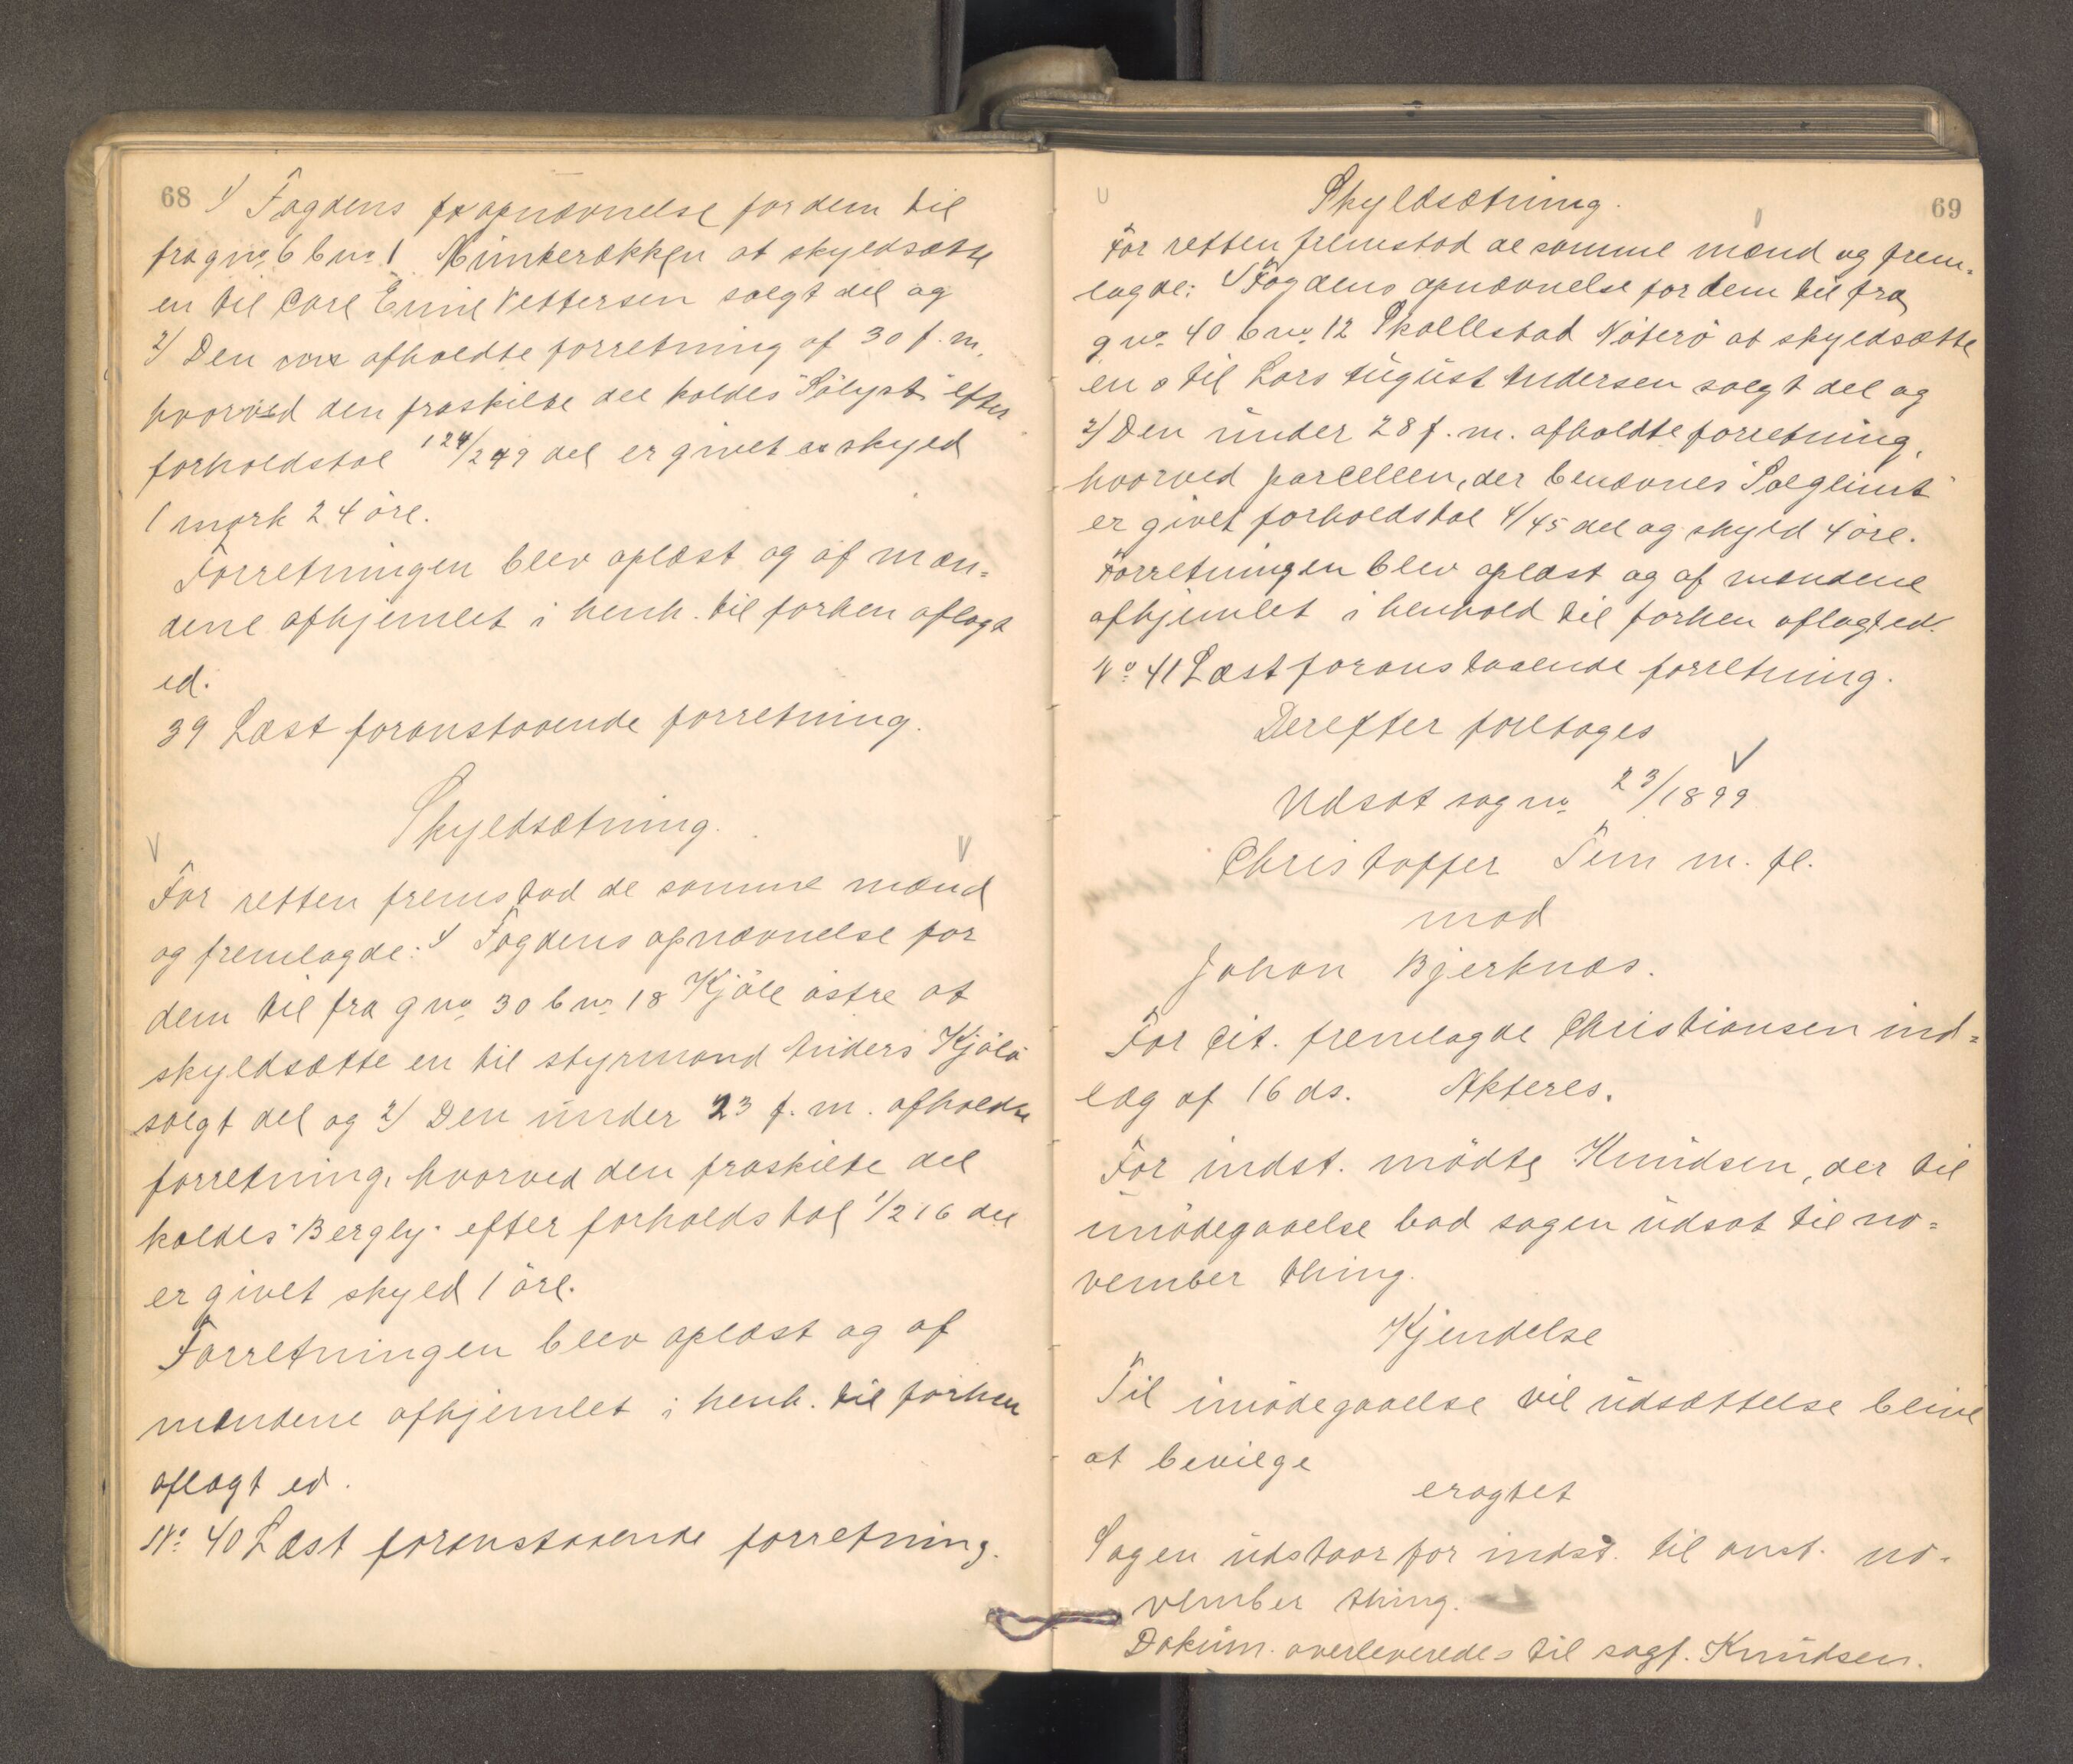 68 1/ Fogdens opnævnelse for dem til
fra gno 6 bno 1 Munkerækken at skyldsætte
en til Carl Emil Pettersen solgt del og
2/ Den afholdte forretning af 30 f. m.
hvorved den fraskilte del kaldes "Sölyst" efter
forholdstal 124/249 del er givet skyld
1 mark 24 öre.
Forretningen blev oplæst og af mæn=
dene afhjemlet i henh. til forhen aflagt
ed.
39 Læst foranstaaende forretning.
Skyldsætning.
For retten fremstod de samme mænd
og fremlagde: 1/ Fogdens opnævnelse for
dem til fra gno 30 bno 18 Kjöle östre at
skyldsætte en til styrmand Anders Kjölö
solgt del og 2/ Den under 23 f. m. afholdte
forretning, hvorved den fraskilte del
kaldes "Bergly" efter forholdstal 1/216 del
er givet skyld 1 öre.
Forretningen blev oplæst og af
mændene afhjemlet i henh. til forhen
aflagt ed.
No 40 Læst foranstaaende forretning.
69
Skyldsætning.
For retten fremstod de samme mænd og frem=
lagde: 1/ Fogdens opnævnelse for dem til fra
gno 40 bno 12 Skallestad Nöterö at skyldsætte
en til Lars August Andersen solgt del og
2/ Den under 28 f. m. afholdte forretning,
hvorved parcellen, der benævnes "Solglimt"
er givet forholdstal 4/45 del og skyld 4 öre.
Forretningen blev oplæst og af mændene
afhjemlet i henhold til forhen aflagt ed.
No 41 Læst foranstaaende forretning.
Derefter foretages
Udsat sag no 23/1899
Christoffer Tem m. fl.
mod
Johan Bjerknæs.
For cit. fremlagde Christiansen ind=
læg af 16 ds. Akteres.
For indst. mödte Knudsen, der til
imödegaaelse bad sagen udsat til no=
vember thing.
Kjendelse
Til imödegaaelse vil udsættelse blive
at bevilge
eragtet
Sagen udstaar for indst. til anst. no=
vember thing.
Dokum. overleveredes til sagf. Knudsen.